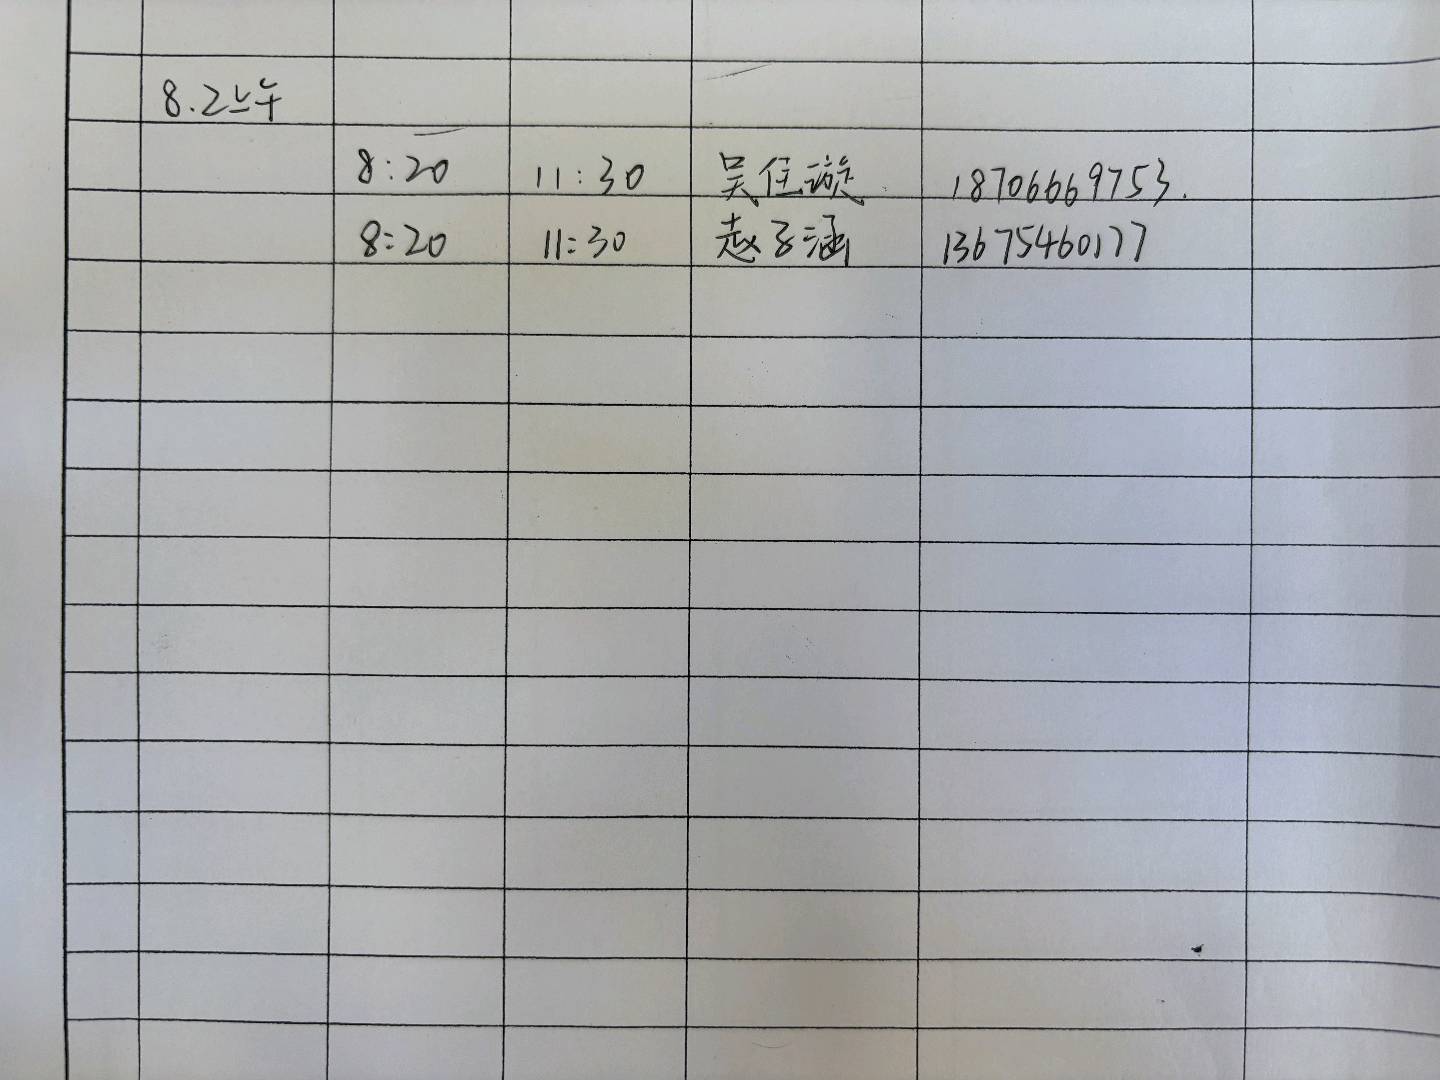 8.2上午
8:20 11:30 吴任漩 18706669753.
8:20 11:30 赵子涵 13675460177